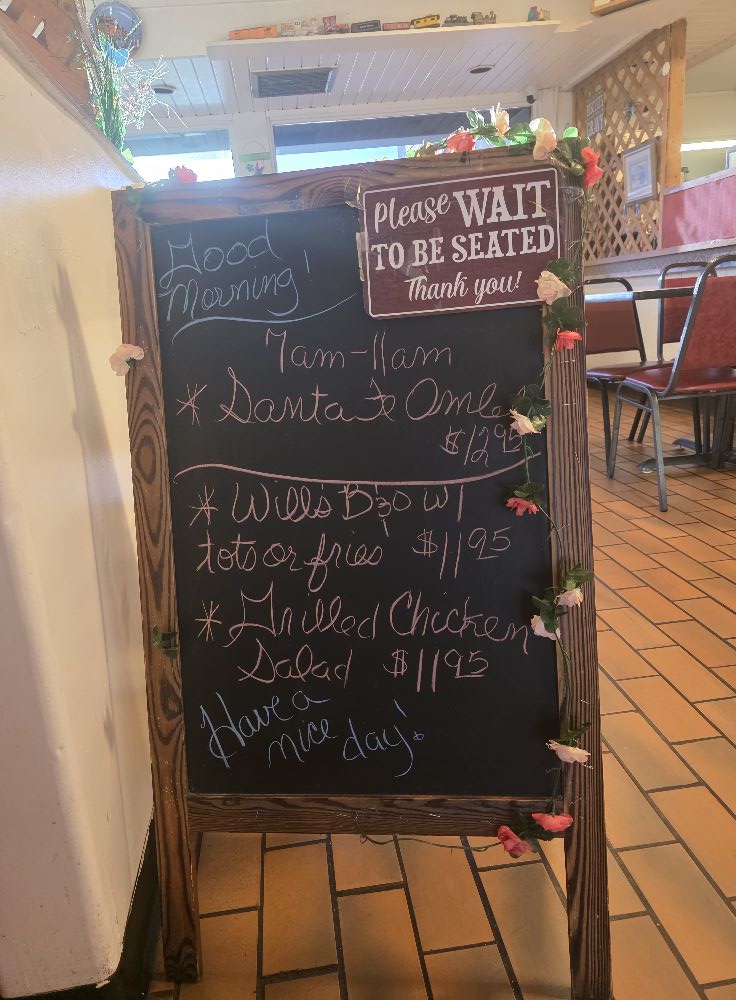 Good
Morning!
Please WAIT
TO BE SEATED
Thank you!
7am-11am
* Santa Fe Omle
$12.95
* Will's BBQ w/
tots or fries $11.95
* Grilled Chicken
Salad $11.95
Have a
nice day!